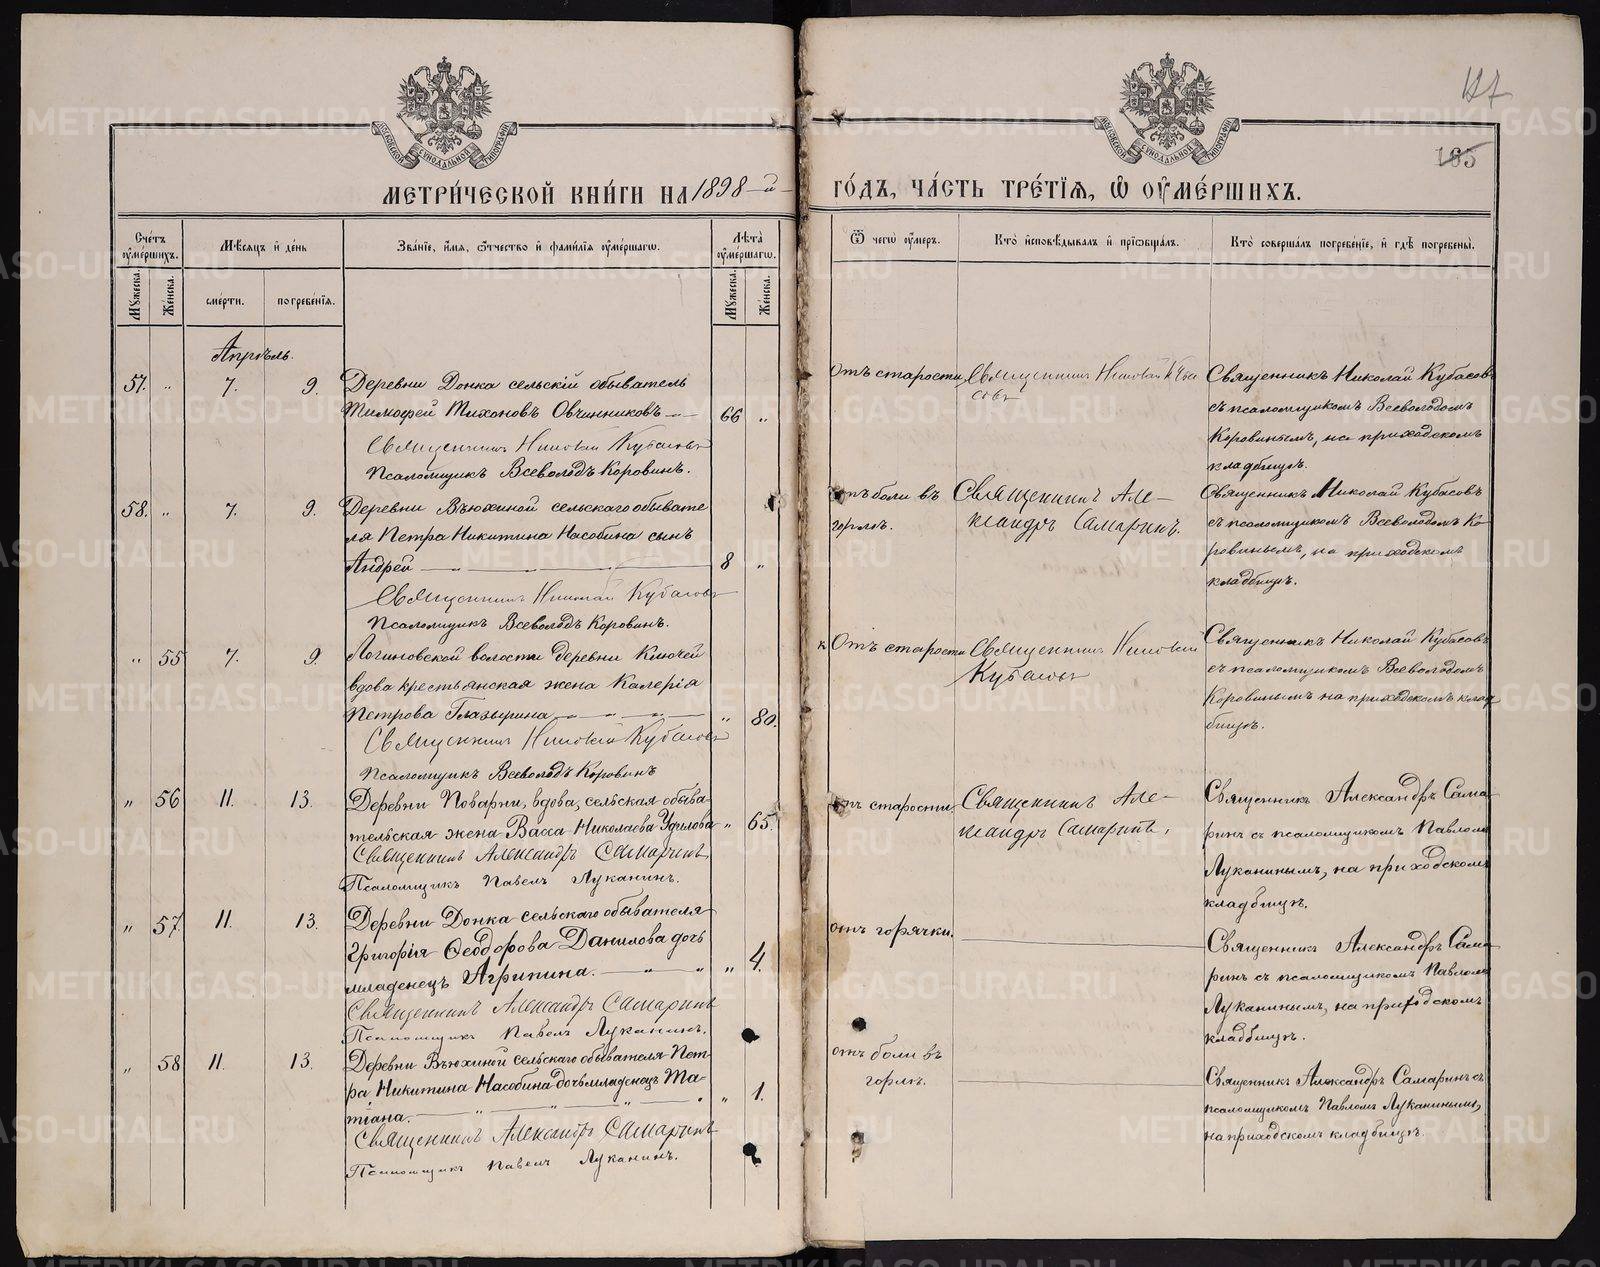 187
185
МЕТРИ́ЧЕСКОЙ КНИ́ГИ НА 1898-й
ГО́ДЪ, ЧА́СТЬ ТРЕ́ТІѦ, Ѽ ОУ҆МЕ́РШИХЪ.
Сче́тъ оу҆ме́ршихъ.
Мꙋжеска.
Же́нска.
Мѣ́сяцъ и҆ де́нь
сме́рти.
погребе́нїѧ.
Зва́нїе, и҆́мѧ, ѻ҆́тчество и҆ фами́лїѧ оу҆ме́ршагѡ.
Лѣ́та оу҆ме́ршагѡ.
Мꙋжеска.
Же́нска.
Ѿ чегѡ̀ оу҆́меръ.
Кто̀ и҆сповѣ́дывалъ и҆ прїѡбща́лъ.
Кто̀ соверша́лъ погребе́нїе, и҆ гдѣ̀ погребены̀.
Апрѣль.
57. " 7. 9. Деревни Донка сельскій обыватель
Тимофей Тихоновъ Овчинниковъ 66 "
Священникъ Николай Кубасовъ
Псаломщикъ Всеволодъ Коровинъ.
Отъ старости
Священникъ Николай Куба
совъ
Священникъ Николай Кубасовъ
съ псаломщикомъ Всеволодомъ
Коровинымъ, на приходскомъ
кладбищѣ.
58. " 7. 9. Деревни Вьюхиной сельскаго обывате
ля Петра Никитина Насобина сынъ
Андрей 8 "
Священникъ Николай Кубасовъ
Псаломщикъ Всеволодъ Коровинъ.
отъ боли въ
горлѣ.
Священникъ Але-
ксандръ Самаринъ.
Священникъ Николай Кубасовъ
съ псаломщикомъ Всеволодомъ Ко
ровинымъ, на приходскомъ
кладбищѣ.
" 55 7. 9. Логиновской волости деревни Ключей
вдова крестьянская жена Калерія
Петрова Глазырина " 80.
Священникъ Николай Кубасовъ
Псаломщикъ Всеволодъ Коровинъ
Отъ старости
Священникъ Николай
Кубасовъ
Священникъ Николай Кубасовъ
съ псаломщикомъ Всеволодомъ
Коровинымъ на приходскомъ клад
бищѣ.
" 56 11. 13. Деревни Поварни, вдова, сельская обыва-
тельская жена Васса Николаева Удилова " 65.
Священникъ Александръ Самаринъ
Псаломщикъ Павелъ Луканинъ.
отъ старости
Священникъ Але-
ксандръ Самаринъ,
Священникъ Александръ Сама-
ринъ съ псаломщикомъ Павломъ
Луканинымъ, на приходскомъ
кладбищѣ.
" 57 11. 13. Деревни Донка сельскаго обывателя
Григорія Ѳеодорова Данилова дочь
младенецъ Агрипина. " 4.
Священникъ Александръ Самаринъ
Псаломщикъ Павелъ Луканинъ.
отъ горячки.
Священникъ Александръ Сама-
ринъ съ псаломщикомъ Павломъ
Луканинымъ, на приходскомъ
кладбищѣ.
" 58 11. 13. Деревни Вьюхиной сельскаго обывателя Пет-
ра Никитина Насобина дочь младенецъ Та-
тіана. " 1.
Священникъ Александръ Самаринъ
Псаломщикъ Павелъ Луканинъ.
отъ боли въ
горлѣ.
Священникъ Александръ Самаринъ съ
псаломщикомъ Павломъ Луканинымъ,
на приходскомъ кладбищѣ.
METRIKI.GASO-URAL.RU